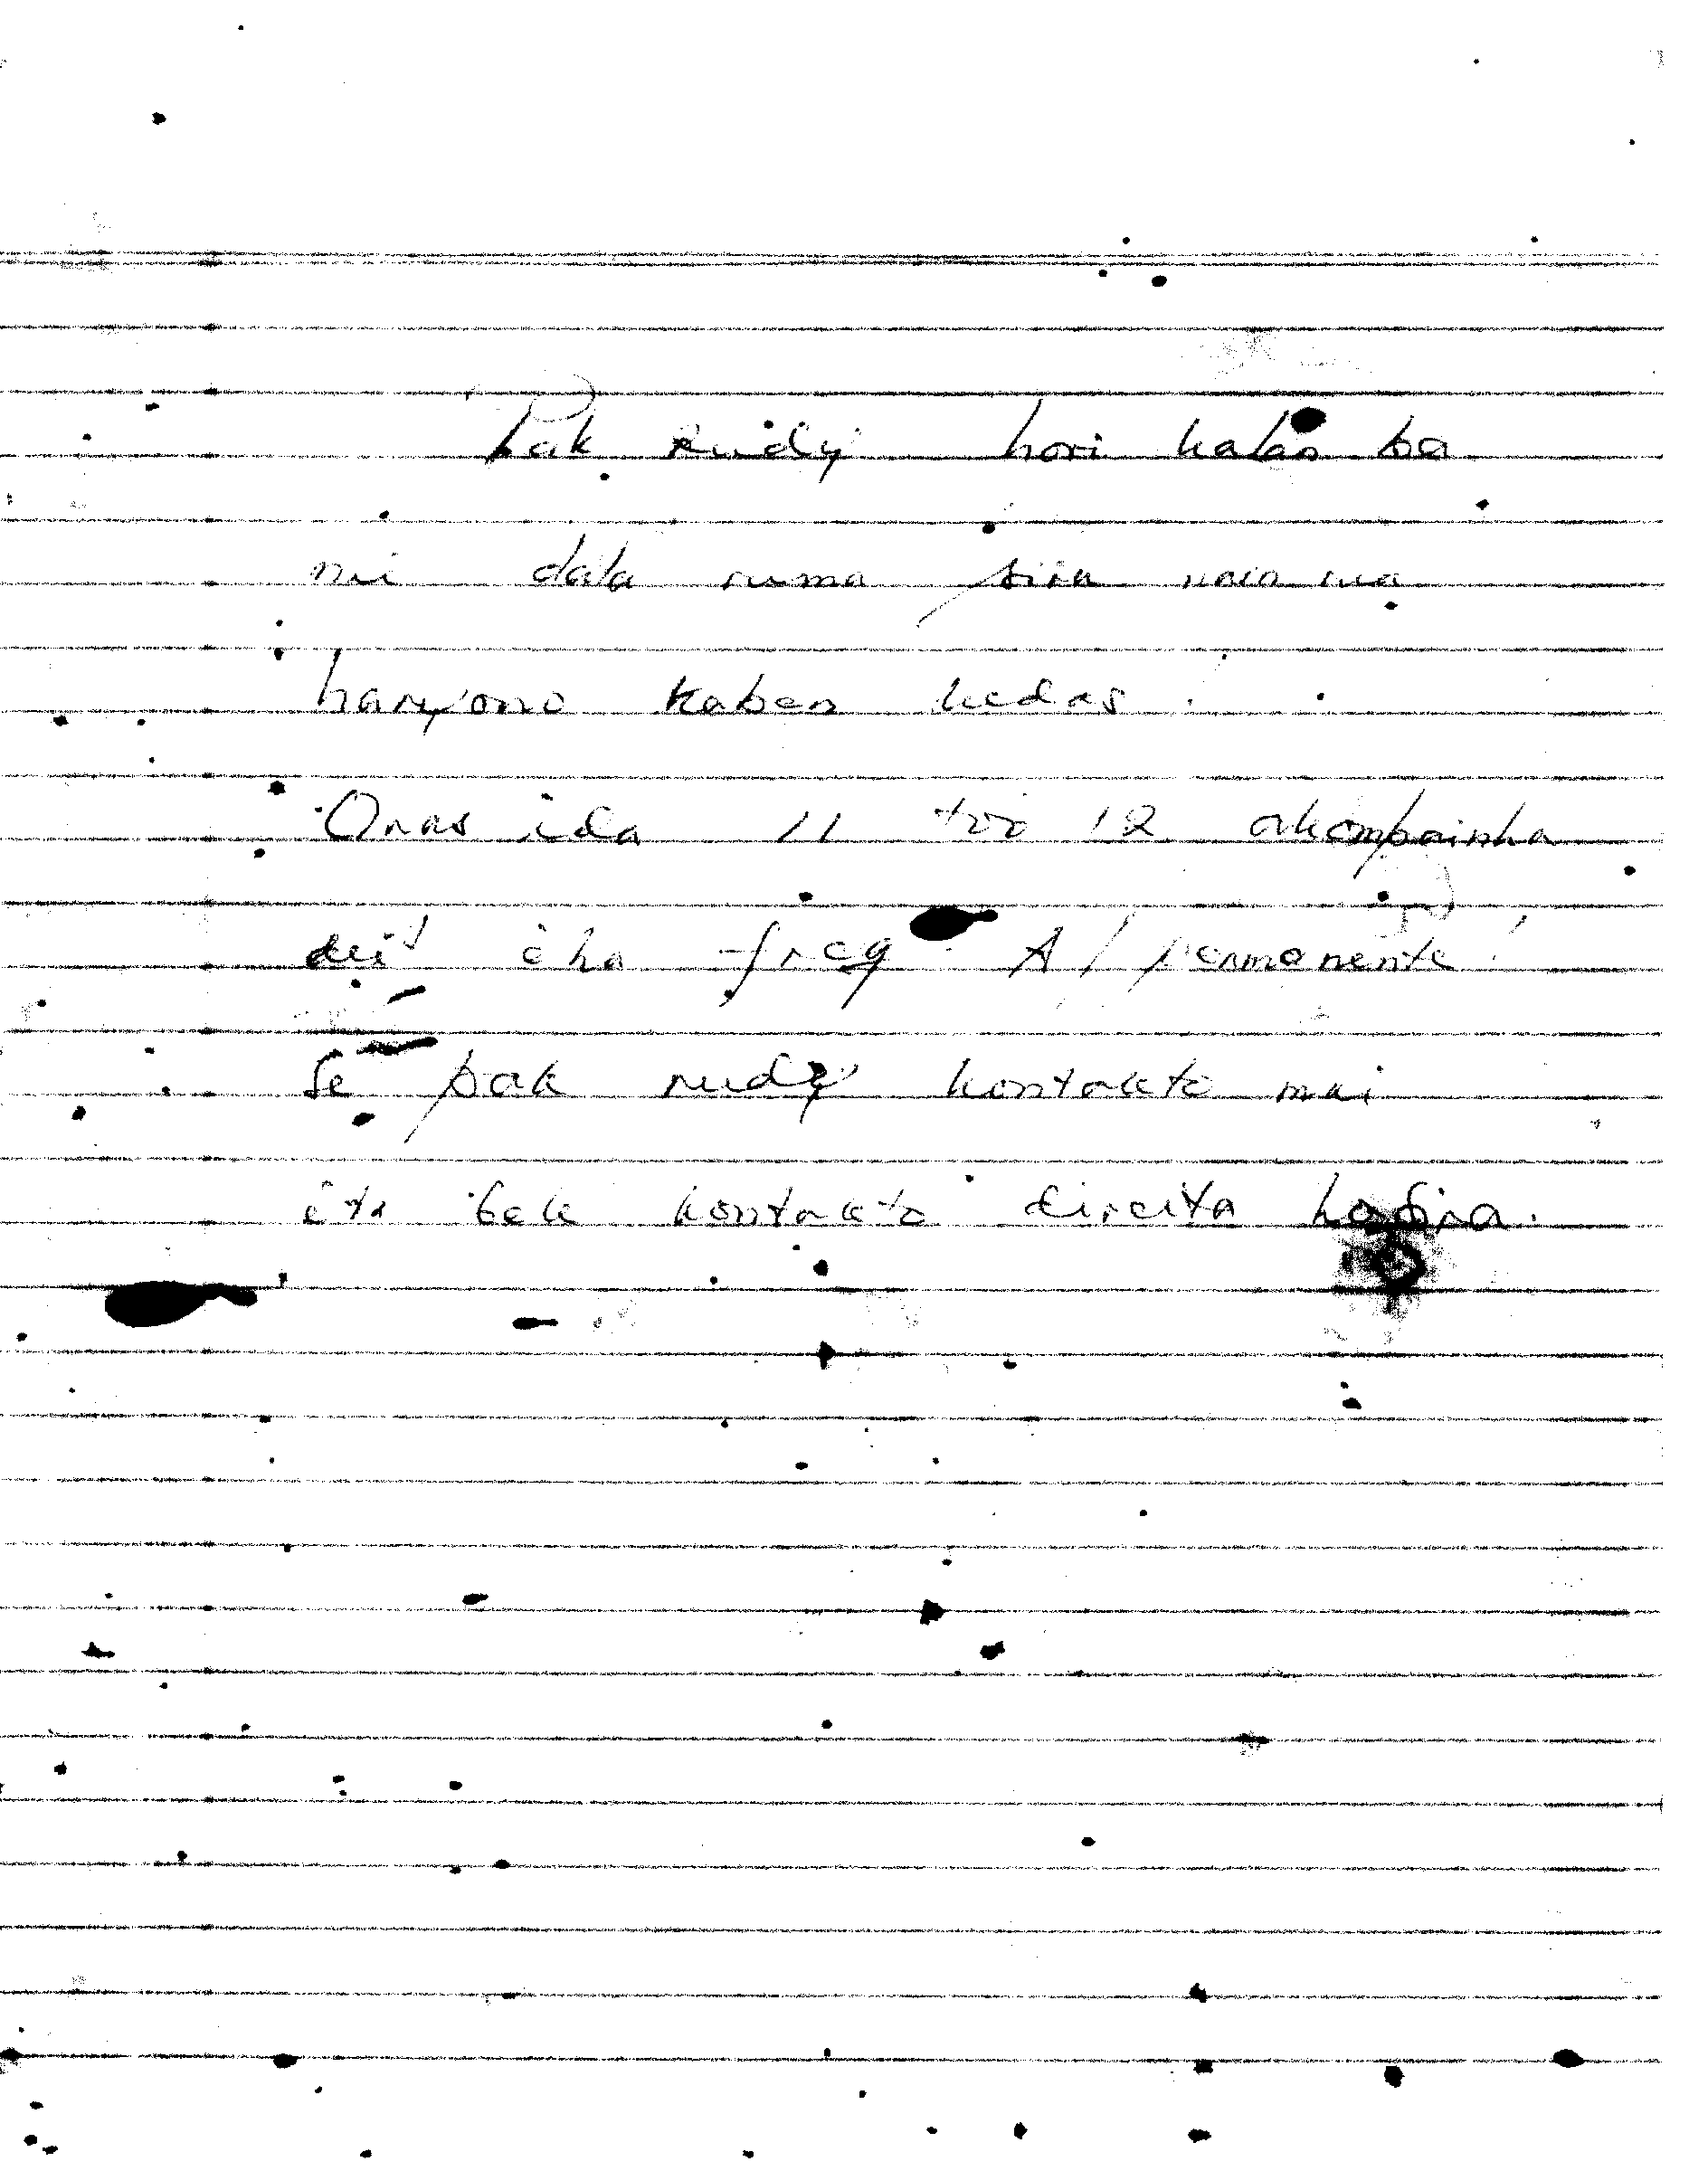 Pak Rudy hori kalan ba
nii data ruma sira nain rua
haryono kaben hedas.
Oras ida 11 too 12 akompainha
dei iha freq A / permanente!
Se pak rudy kontakto mai
ita bele kontakto direita ho sira.